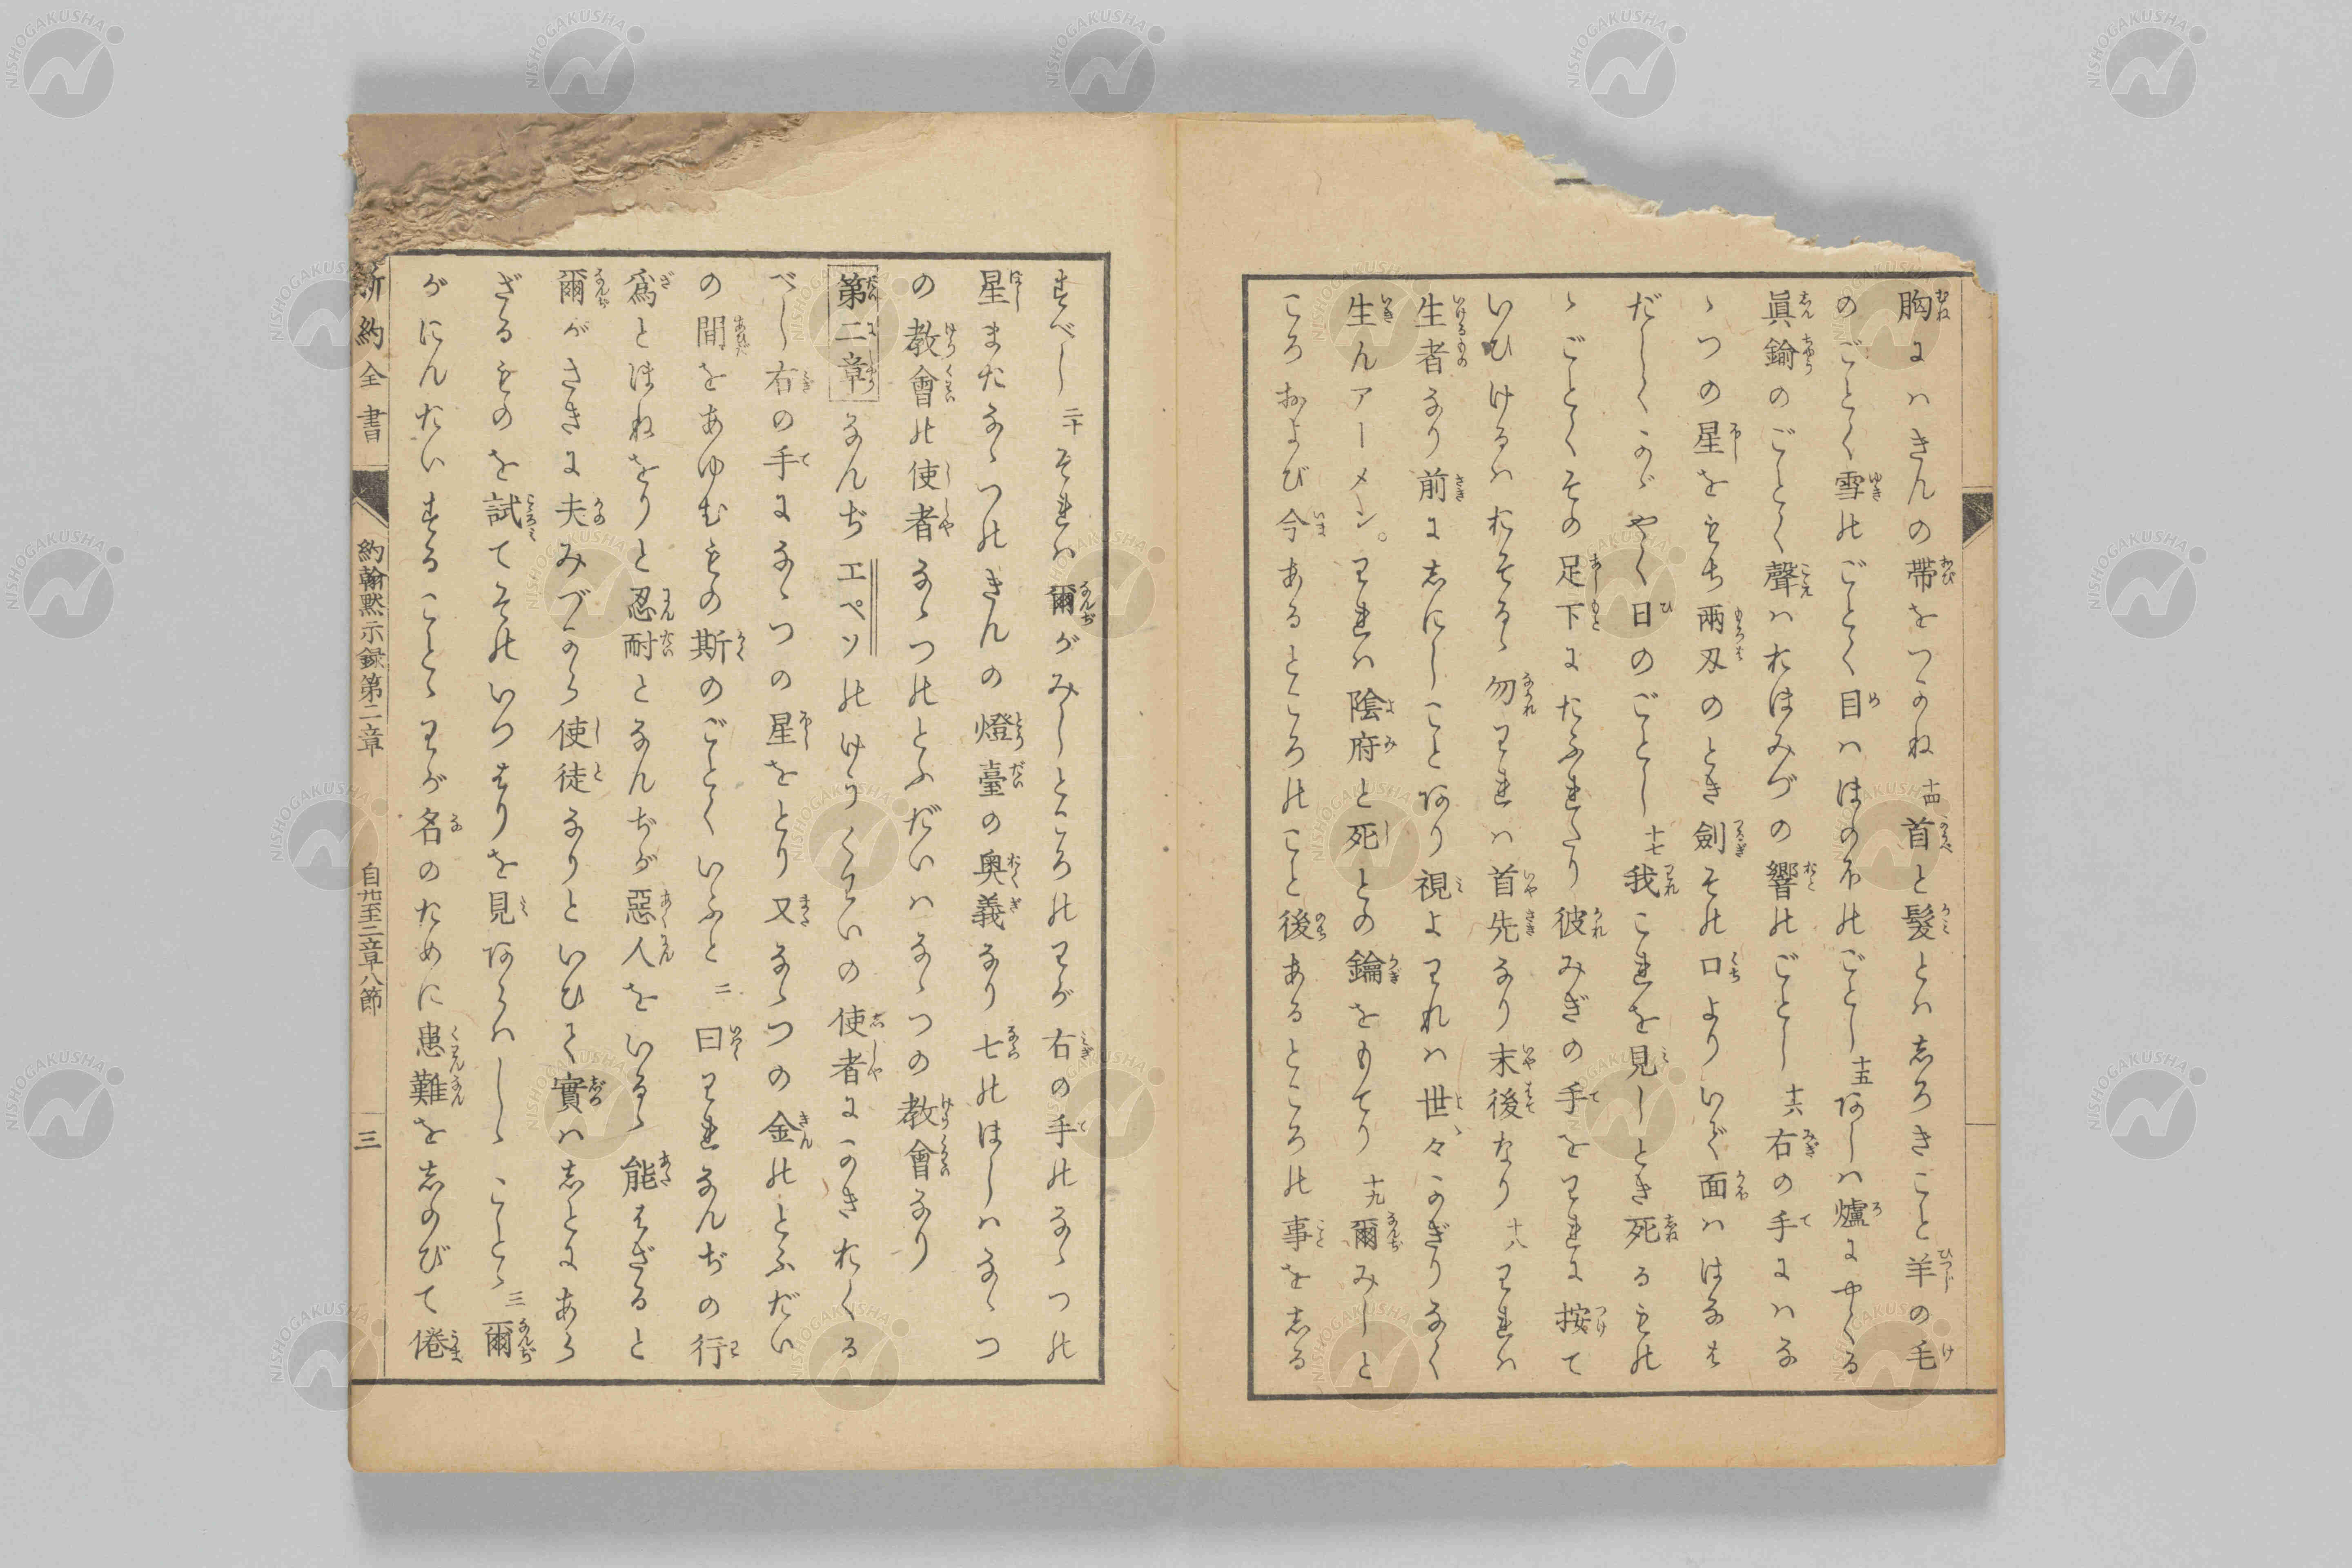 胸にハきんの帶をつかね 十四 首と髮とハしろきこと羊の毛
のごとく雪のごとく目ハほのほのごとし 十五 あしハ爐にやくる
眞鍮のごとく聲ハおほみづの響のごとし 十六 右の手にハな
ゝつの星をもち兩刃のとき劍その口よりいで面ハはなは
だしくかゞやく日のごとし 十七 我これを見しとき死るもの
ゝごとくその足下にたふれたり彼みぎの手をわれに按て
いひけるハおそるゝ勿われハ首先なり末後なり 十八 われハ
生者なり前にしにしことあり視よわれハ世々かぎりなく
生んアーメン。われハ陰府と死との鑰をもてり 十九 爾みしと
ころおよび今あるところのこと後あるところの事をしる
すべし 二十 それハ爾がみしところのわが右の手のなゝつの
星またなゝつのきんの燈臺の奥義なり七のほしハなゝつ
の教會の使者なゝつのとふだいハなゝつの教會なり
第二章 なんぢエペソのけうくわいの使者にかきおくる
べし右の手になゝつの星をとり又なゝつの金のとふだい
の間をあゆむもの斯のごとくいふと 二 曰われなんぢの行
爲とほねをりと忍耐となんぢが惡人をいるゝ能はざると
爾がさきに夫みづから使徒なりといひて實ハしとにあら
ざるものを試てそのいつはりを見あらハしゝことゝ 三 爾
がにんたいすることゝわが名のために患難をしのびて倦
新約全書 約翰黙示録第二章 自 至二章八節 三
NISHOGAKUSHA